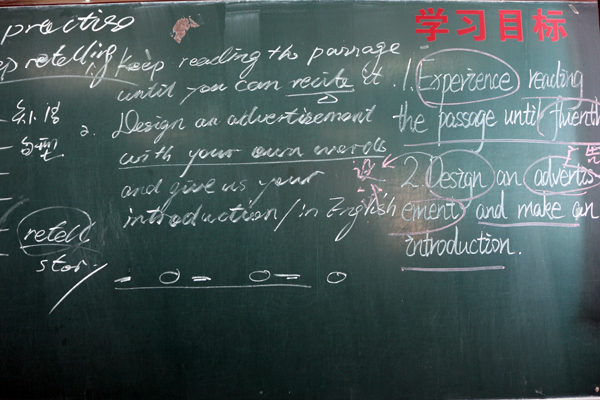 practise
retelling
1. Keep reading the passage
until you can recite it.
2. Design an advertisement
with your own words
and give us your
introduction / in English
retell
学习目标
1. Experience reading
the passage until fluently
2. Design an advertis
ement and make an
introduction.